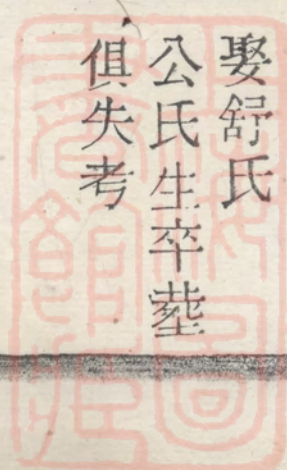 娶舒氏
公氏生卒塟
俱失考